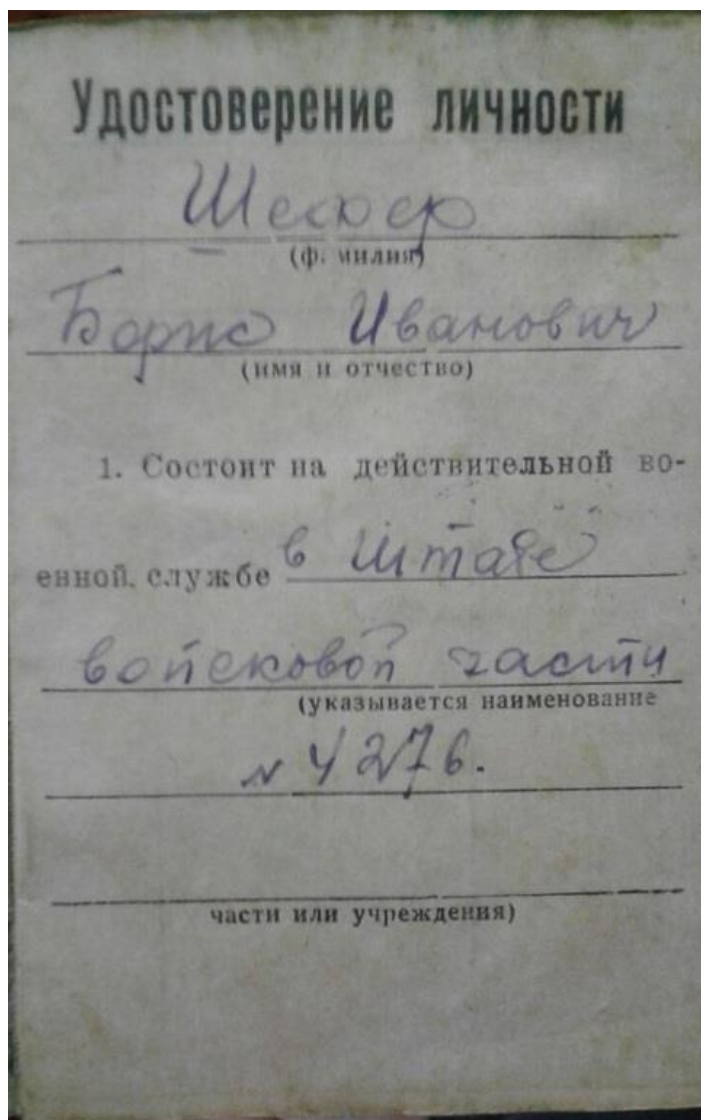 Удостоверение личности
Шефер
(ф. милия)
Борис Иванович
(имя и отчество)
1. Состоит на действительной во-
енной. службе в Штабе
войсковой части
(указывается наименование
№ 4276.
части или учреждения)